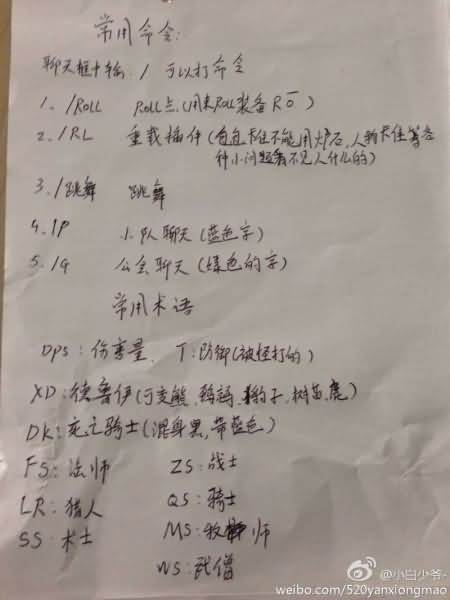 常用命令:
聊天框中输: / 可以打命令
1. /Roll Roll点(用来Roll装备Rō)
2. /RL 重载插件(自己卡住不能用炉石,人物卡住等各种小问题看不见人什么的)
3. /跳舞 跳舞
4. /P 小队聊天(蓝色字)
5. /G 公会聊天(绿色的字)
常用术语
Dps: 伤害量、 T: 防御(被怪打的)
XD: 德鲁伊(可变熊、鹌鹑、豹子、树苗、鹿)
DK: 死亡骑士(混身黑,带蓝色)
FS: 法师 ZS: 战士
LR: 猎人 QS: 骑士
SS: 术士 MS: 牧师
WS: 武僧
@小白少爷-
weibo.com/520yanxiongmao